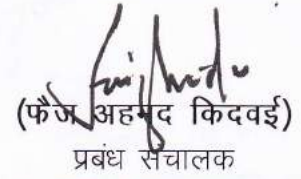 (फैज अहमद किदवई)
प्रबंध संचालक